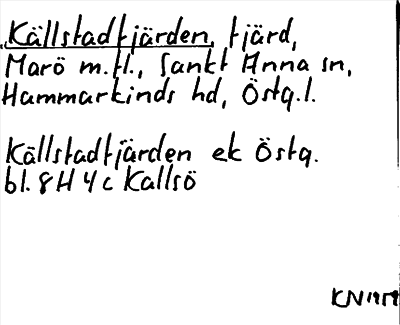 Källstadfjärden, fjärd,
Marö m.fl., Sankt Anna sn,
Hammarkinds hd, Östg.l.
Källstadfjärden ek Östg.
bl. 8H 4c Kallsö